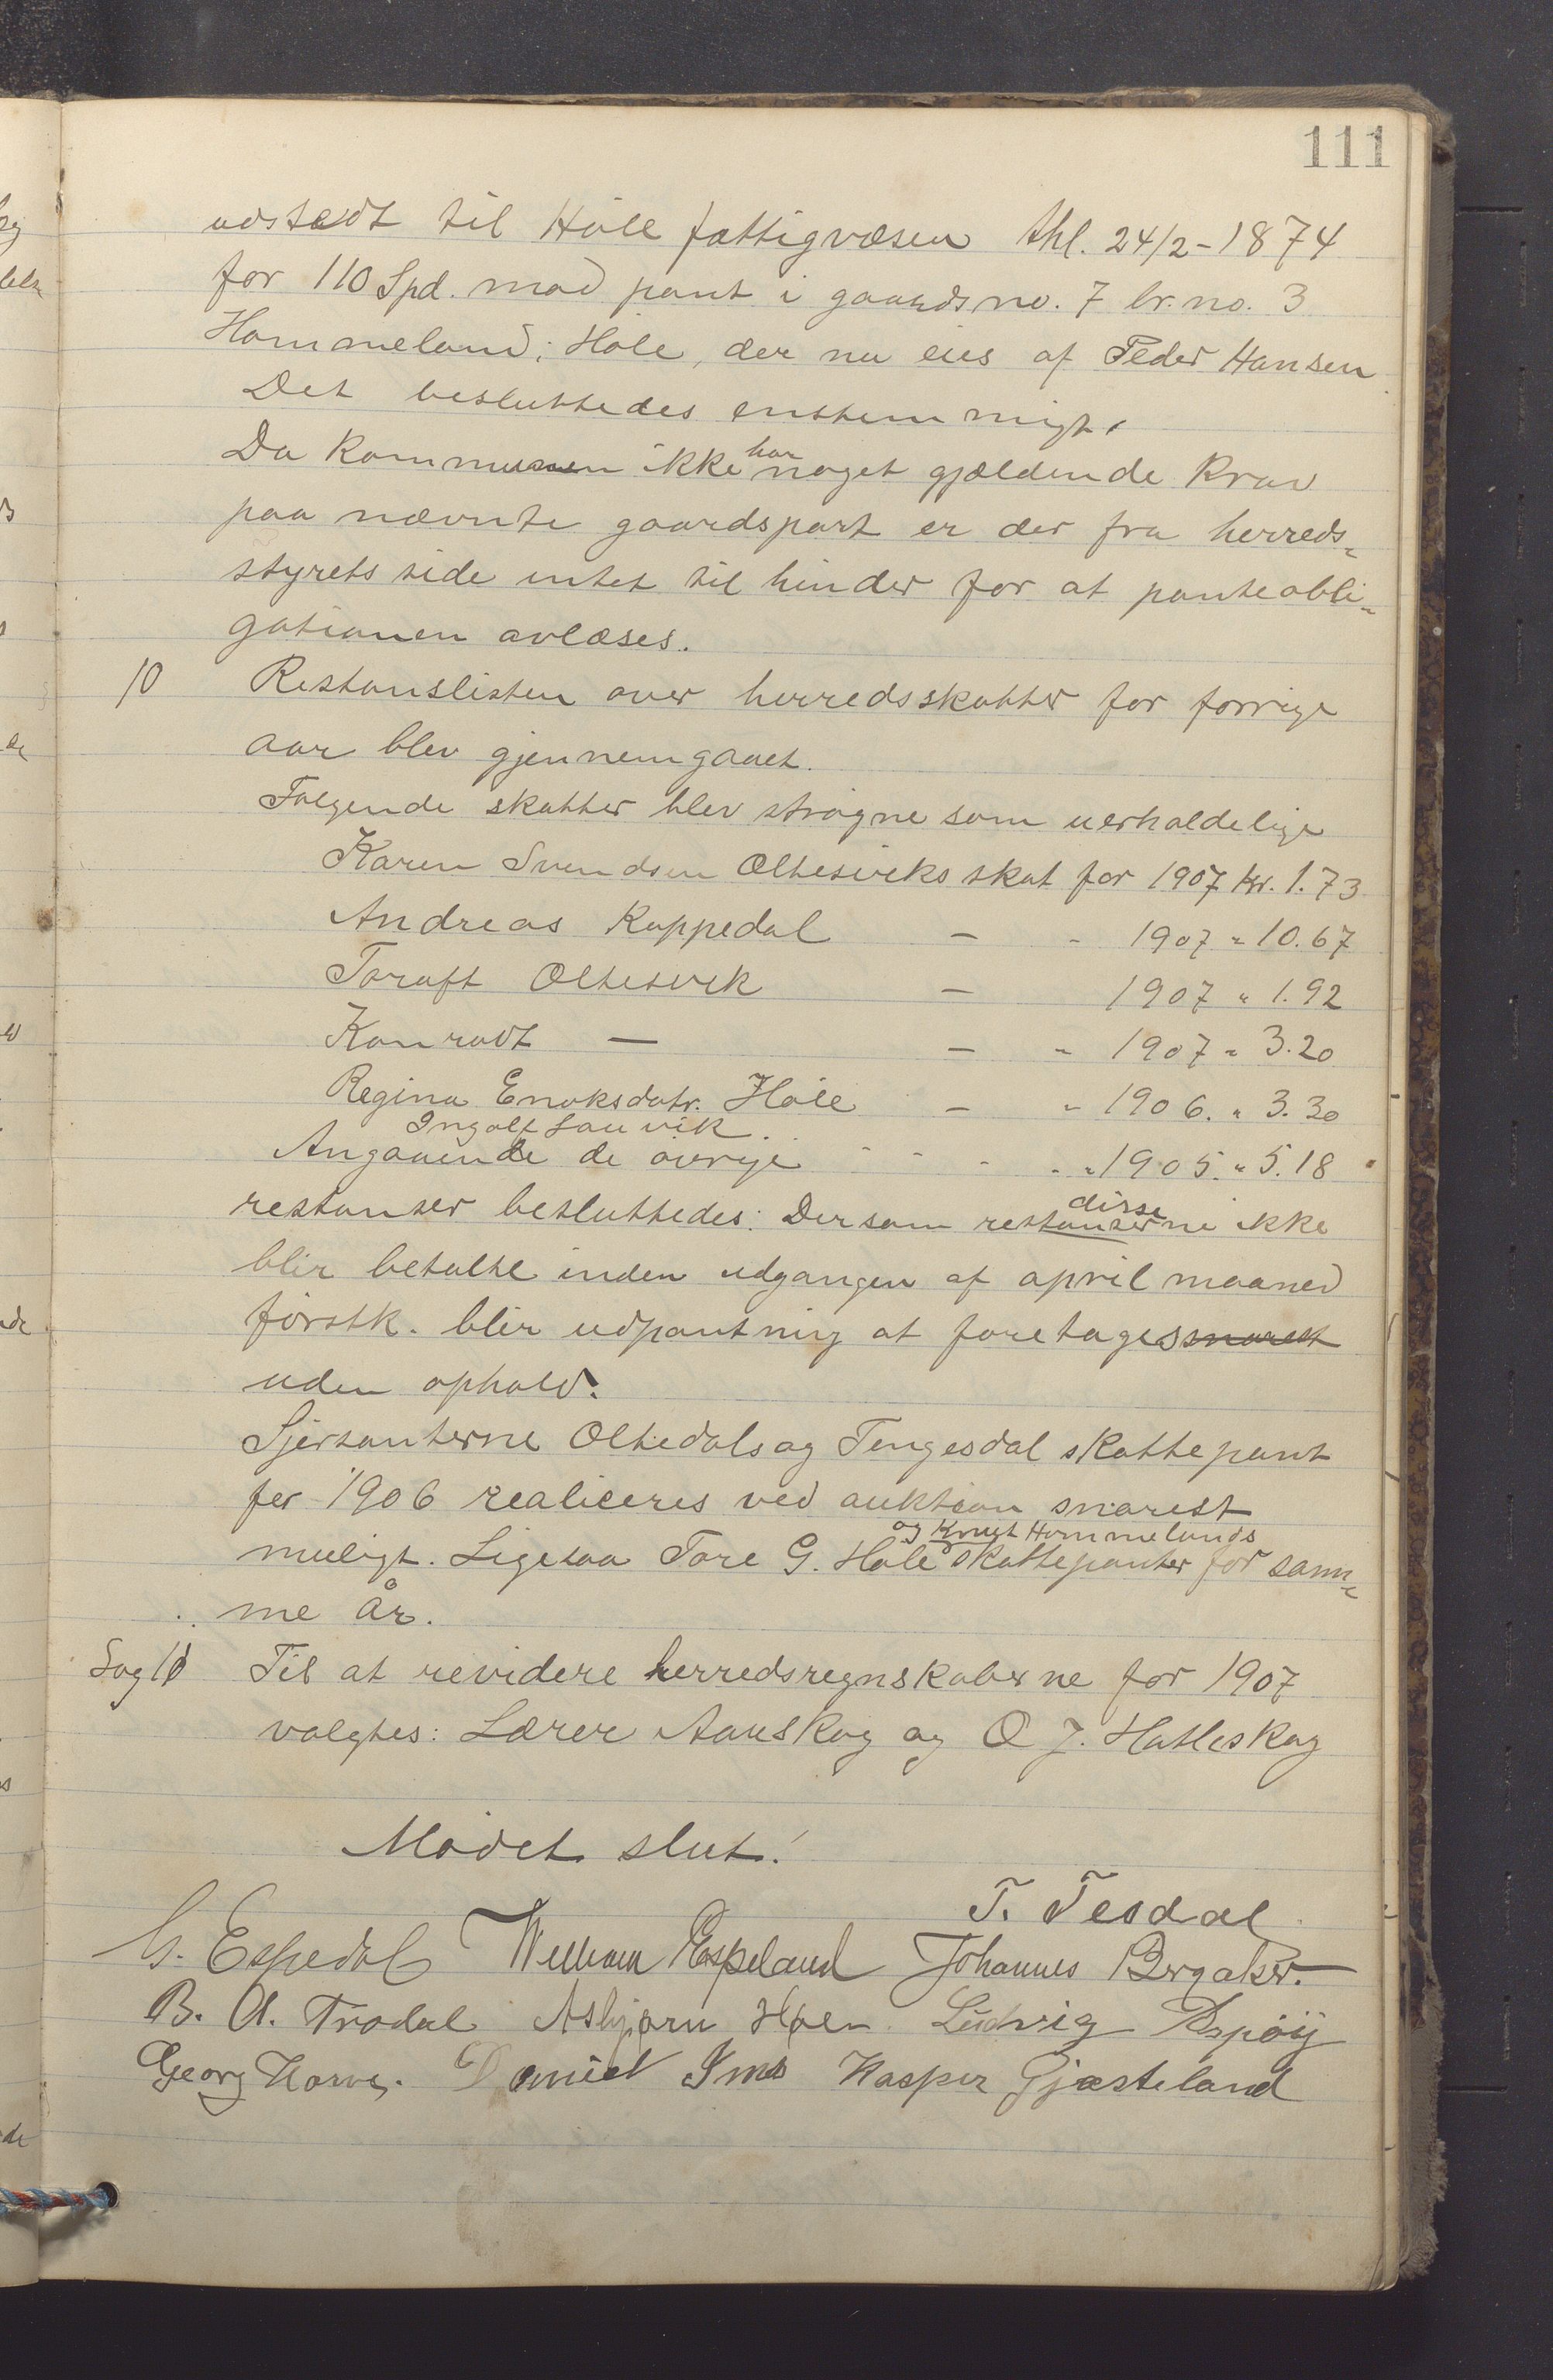 111
udstedt til Høle fattigvæsen thl. 24/2-1874
for 110 Spd. mod pant i gaardsno. 7 br.no. 3
Hommeland i Høle, der nu eies af Peder Hansen
Det besluttedes enstemmigt.
Da kommunen ikke har noget gjældende krav
paa nævnte gaardspart er der fra herreds-
styrets side intet til hinder for at panteobli-
gationen avlæses.
10 Restanslisten over herredsskatter for forrige
aar blev gjennemgaaet.
Følgende skatter blev strøgne som uerholdelige
Karen Svendsen Oltesviks skat for 1907 kr. 1.73
Andreas Kappedal - - 1907 " 10.67
Toraft Oltesvik - 1907 " 1.92
Konradt - - - 1907 " 3.20
Regina Enoksdatr. Høle - - 1906. " 3.30
Ingolf Lauvik.
Angaaende de øvrige - - - - " 1905. " 5.18
restanser besluttedes: Dersom disse restanserne ikke
blir betalte inden udgangen af april maaned
førstk. blir udpantning at foretages snarest
uden ophold.
Sjersanterne Oltedals og Tengesdal skattepant
for 1906 realiceres ved auktion snarest
og Knut Hommelands
muligt. Ligesaa Tore G. Høle skattepanter for sam-
me år.
Sag 11 Til at revidere herredsregnskaberne for 1907
valgtes: Lærer Aanskog og O J. Hatleskog
Mødet slut!
T. Tesdal
G. Espedal William Espeland Johannes Bergaker.
B. A. Trodal Asbjørn Høle Ludvig Espøy
Georg Norvg. Daniel Ims Kasper Gjesteland